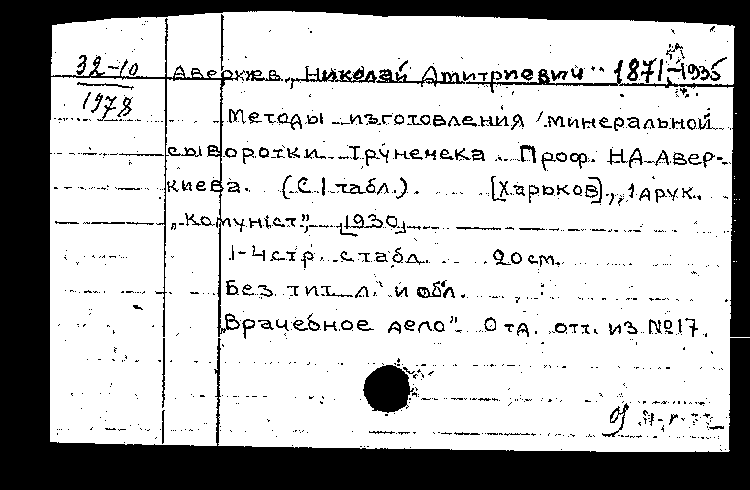 32-10
1978
Аверкиев, Николай Дмитриевич 1871-1935
Методы изготовления минеральной
сыворотки Трунечека. Проф. НД Авер-
киева. (С 1 табл.). [Харьков], 1 друк.
„Комунiст”, [1930]
1-4 стр. с табл. 20 см.
Без тит. л. и обл.
„Врачебное дело”. Отд. отт. из №17.